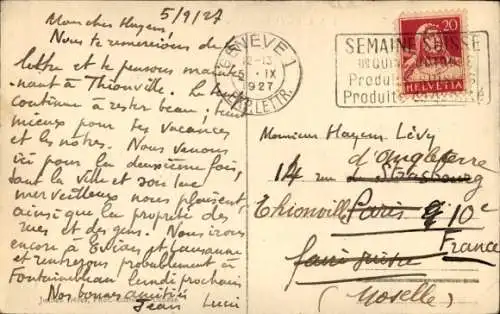 5/9/27
Mon cher Hayem,
Nous te remercions de ta
lettre et te pensons mainte-
nant à Thionville. Le temps
continue à rester beau ; tant
mieux pour tes vacances
et les nôtres. Nous venons
ici pour la deuxième fois,
tant la ville et son lac
merveilleux nous plaisent,
ainsi que la propreté des
rues et des gens. Nous irons
encore à Evian et Lausanne
et rentrerons probablement à
Fontainebleau lundi prochain
Nos bonnes amitiés
Jean
GENÈVE 1
12-13
5. IX
1927
EXP. LETTR.
SEMAINE SUISSE
Produits
Produits
20
HELVETIA
Monsieur Hayem Lévy
d'Angleterre
14 rue de Strasbourg
Thionville Paris 10e
France
faire suivre
(Moselle)